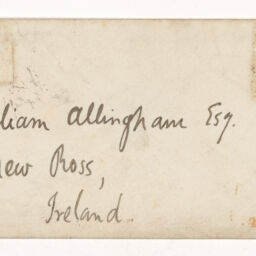 liam Allingham Esq.
New Ross,
Ireland.